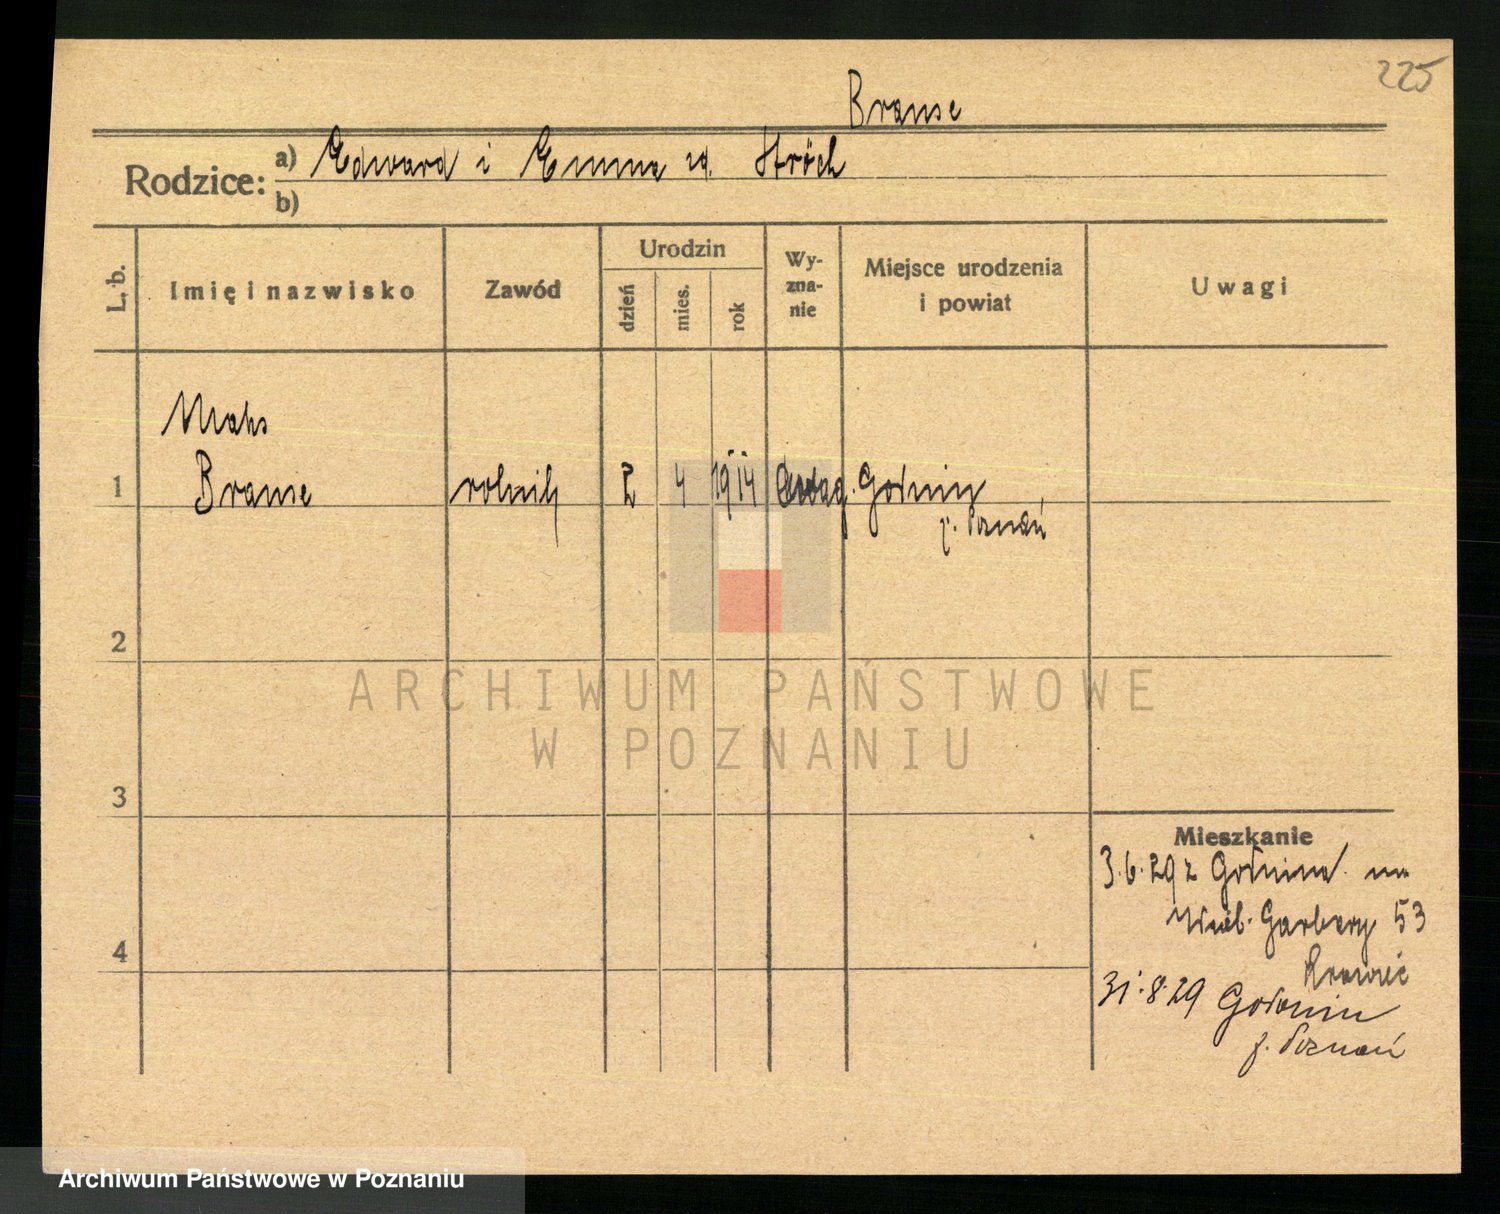 225
Branse
Rodzice: a) Edward i Emma ur. Ströch
b)
L. b.
Imię i nazwisko
Zawód
Urodzin
dzień
mies.
rok
Wy-
zna-
nie
Miejsce urodzenia
i powiat
Uwagi
Maks
1 Branse rolnik 2 4 1914 ewag. Gołuń
p. Poznań
2
ARCHIWUM PAŃSTWOWE
W POZNANIU
3
Mieszkanie
3.6.29 z
Garbary 53
4
31.8.29
p. Poznań
Archiwum Państwowe w Poznaniu